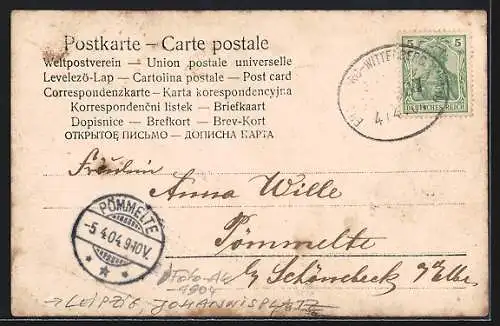 Postkarte – Carte postale
Weltpostverein – Union postale universelle
Levelező-Lap – Cartolina postale – Post card
Correspondenzkarte – Karta korespondencyjna
Korrespondenční listek – Briefkaart
Dopisnice – Brefkort – Brev-Kort
ОТКРЫТОЕ ПИСЬМО – ДОПИСНА КАРТА
5 5
DEUTSCHES REICH
WITTENBERG
4/4
Fräulein
Anna Wille
Pömmelte
b/ Schönebeck a/Elbe
PÖMMELTE
-5.4.04.9-10V.
* * *
Foto-AK
-1904
→ LEIPZIG, JOHANNISPLATZ